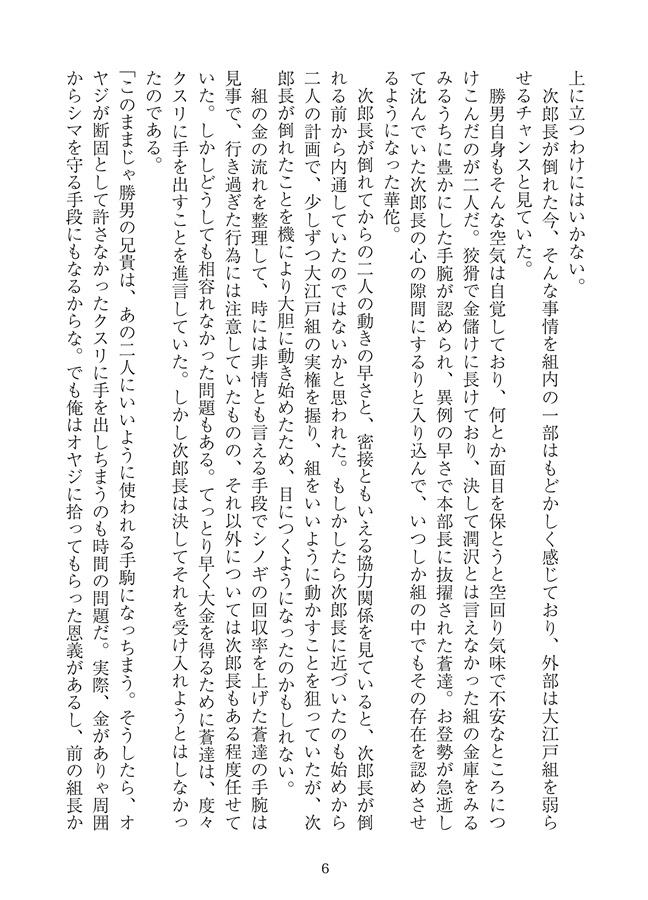 上に立つわけにはいかない。
　次郎長が倒れた今、そんな事情を組内の一部はもどかしく感じており、外部は大江戸組を弱ら
せるチャンスと見ていた。
　勝男自身もそんな空気は自覚しており、何とか面目を保とうと空回り気味で不安なところにつ
けこんだのが二人だ。狡猾で金儲けに長けており、決して潤沢とは言えなかった組の金庫をみる
みるうちに豊かにした手腕が認められ、異例の早さで本部長に抜擢された蒼達。お登勢が急逝し
て沈んでいた次郎長の心の隙間にするりと入り込んで、いつしか組の中でもその存在を認めさせ
るようになった華佗。
　次郎長が倒れてからの二人の動きの早さと、密接ともいえる協力関係を見ていると、次郎長が倒
れる前から内通していたのではないかと思われた。もしかしたら次郎長に近づいたのも始めから
二人の計画で、少しずつ大江戸組の実権を握り、組をいいように動かすことを狙っていたが、次
郎長が倒れたことを機により大胆に動き始めたため、目につくようになったのかもしれない。
　組の金の流れを整理して、時には非情とも言える手段でシノギの回収率を上げた蒼達の手腕は
見事で、行き過ぎた行為には注意していたものの、それ以外については次郎長もある程度任せて
いた。しかしどうしても相容れなかった問題もある。てっとり早く大金を得るために蒼達は、度々
クスリに手を出すことを進言していた。しかし次郎長は決してそれを受け入れようとはしなかっ
たのである。
「このままじゃ勝男の兄貴は、あの二人にいいように使われる手駒になっちまう。そうしたら、オ
ヤジが断固として許さなかったクスリに手を出しちまうのも時間の問題だ。実際、金がありゃ周囲
からシマを守る手段にもなるからな。でも俺はオヤジに拾ってもらった恩義があるし、前の組長か
6